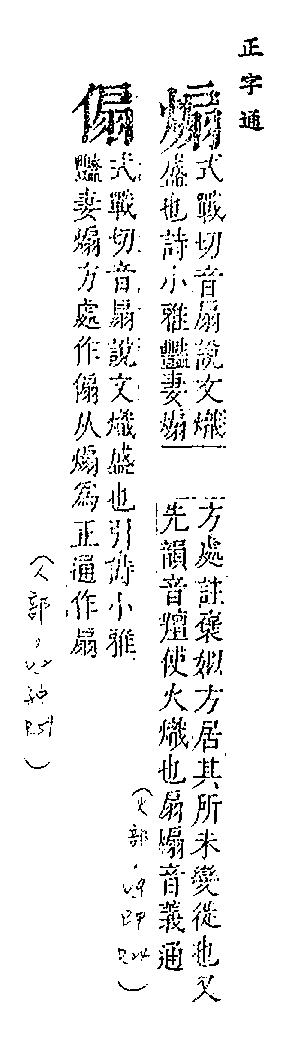 正字通
煽
式戰切音扇說文熾
盛也詩小雅豔妻煽
方處註褒姒方居其所未變徙也又
先韻音羶使火熾也扇煽音義通
(火部,
傓
式戰切音扇說文熾盛也引詩小雅
豔妻煽方處作傓从煽爲正通作扇
(人部,